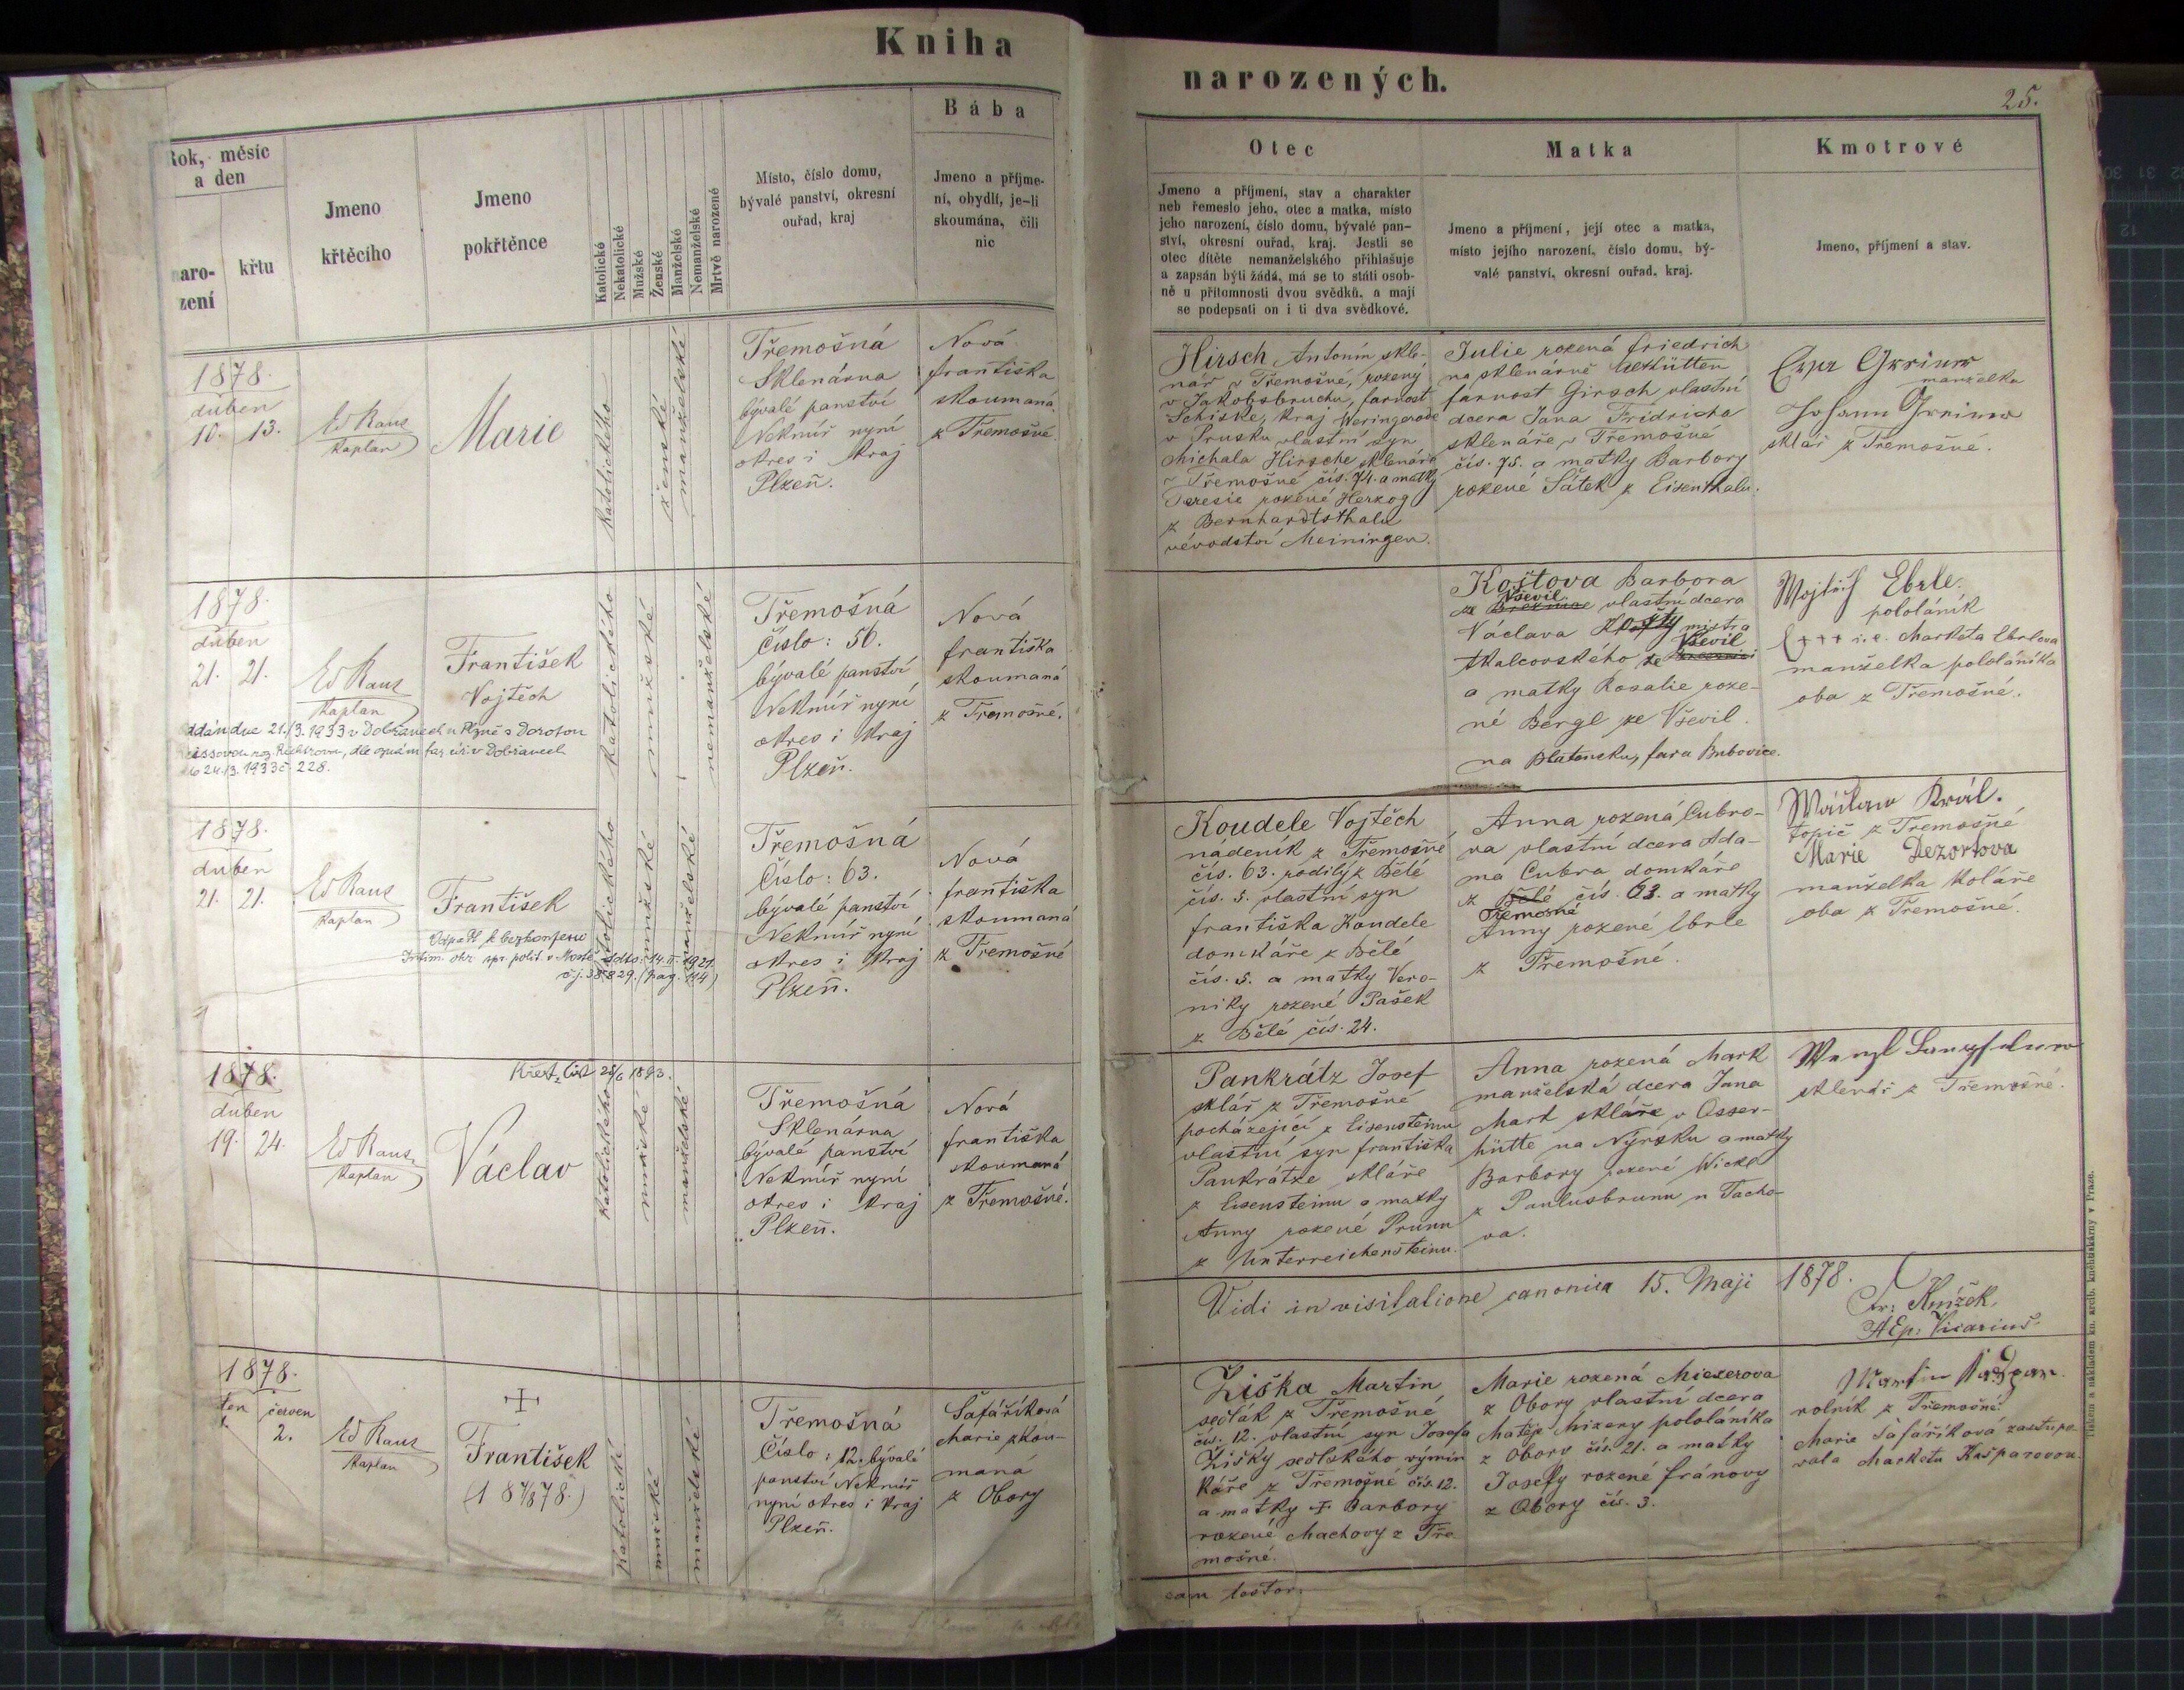 Kniha
narozených.
25.
Rok, měsíc
a den
naro-
zení
křtu
Jmeno
křtěcího
Jmeno
pokřtěnce
Katolické
Nekatolické
Mužské
Ženské
Manželské
Nemanželské
Mrtvě narozené
Místo, číslo domu,
bývalé panství, okresní
ouřad, kraj
Bába
Jmeno a příjme-
ní, obydlí, je-li
skoumána, čili
nic
Otec
Jmeno a příjmení, stav a charakter
neb řemeslo jeho, otec a matka, místo
jeho narození, číslo domu, bývalé pan-
ství, okresní ouřad, kraj. Jestli se
otec dítěte nemanželského přihlašuje
a zapsán býti žádá, má se to státi osob-
ně u přítomnosti dvou svědků, a mají
se podepsati on i ti dva svědkové.
Matka
Jmeno a příjmení, její otec a matka,
místo jejího narození, číslo domu, bý-
valé panství, okresní ouřad, kraj.
Kmotrové
Jmeno, příjmení a stav.
1878.
duben
10. 13.
Ed Raus
Kaplan
Marie
Katolického
ženské
manželské
Třemošná
Sklenárna
bývalé panství
Nekmíř nyní
okres i kraj
Plzeň.
Nová
františka
skoumaná
z Třemošné.
Hirsch Antonín skle-
nář v Třemošné, rozený
v Jakobsbruchu, farnost
Schiske, kraj Weringerode
v Prusku vlastní syn
Michala Hirsche sklenáře
v Třemošné čís. 74. a matky
Teresie rozené Herzog
z Bernhardtsthalu
vévodství Meiningen.
Julie rozená Friedrich
na sklenárně
farnost Girsch vlastní
dcera Jana Fridricha
sklenáře v Třemošné
čís. 75. a matky Barbory
rozené Šátek z Eisenthalu.
manželka
Johann
sklář z Třemošné.
1878.
duben
21. 21.
Ed Raus
Kaplan
František
Vojtěch
oddán dne 21./3. 1933 v Dobřanech u Plzně s Dorotou
roz. Richtrovou, dle oznám. far. úř. v Dobřanech
24./3. 1933 č. 228.
Katolického
mužské
nemanželské
Třemošná
Číslo: 56.
bývalé panství
Nekmíř nyní
okres i kraj
Plzeň.
Nová
františka
skoumaná
z Třemošné.
Koštova Barbora
Vševil
ze vlastní dcera
Václava Košty mistra
Vševil
tkalcovského ze
a matky Rosalie roze-
né Bergl ze Vševil.
na Blatensku, fara Bubovice.
Wojtěch Eberle.
pololáník
+++ i.e. Marketa Ebrlova
manželka pololáníka
oba z Třemošné.
1878.
duben
21. 21.
Ed Raus
Kaplan
František
Odpadl k bezkonfesi
Intim. okr. spr. polit. v Mostě ddto. 14. II. 1921.
č.j. 38829. (pag. 114)
Katolického
mužské
manželské
Třemošná
Číslo: 63.
bývalé panství
Nekmíř nyní
okres i kraj
Plzeň.
Nová
františka
skoumaná
z Třemošné
Koudele Vojtěch
nádeník z Třemošné
čís. 63. rodilý z Bělé
čís. 5. vlastní syn
františka Koudele
domkáře z Bělé
čís. 5. a matky Vero-
niky rozené Pašek
z Bělé čís. 24.
Anna rozená Cubro-
va vlastní dcera Ada-
ma Cubra domkáře
z Bělé čís. 63. a matky
Třemošné
Anny rozené Ebrle
z Třemošné.
Wáclaw Král.
topič z Třemošné
Marie Dezortova
manželka koláře
oba z Třemošné.
1878.
duben
19. 24.
Ed Raus.
Kaplan
Křest. list 28/6 1893.
Václav
Katolického
mužské
manželské
Třemošná
Sklenárna
bývalé panství
Nekmíř nyní
okres i kraj
Plzeň.
Nová
františka
skoumaná
z Třemošné.
Pankrátz Josef
sklář z Třemošné
pocházející z Eisensteinu
vlastní syn františka
Pankrátze skláře
z Eisensteinu a matky
Anny rozené Prunn
z Unterreichensteinu.
Anna rozená Mark
manželská dcera Jana
Mark skláře v Osser-
hütte na Nýrsku a matky
Barbory rozené Wickl
z Paulusbrunn u Tacho-
va.
Wenzl
sklenář z Třemošné.
Vidi in visitatione canonica 15. Maji 1878.
Fr: Knížek,
AEp: Vicarius.
1878.
ten červen
1. 2.
Ed Raus
Kaplan
+
František
Katolické
mužské
manželské
Třemošná
Číslo: 12. bývalé
panství Nekmíř
nyní okres i kraj
Plzeň.
Šafaříková
Marie zkou-
maná
z Obory
Žiška Martin
sedlák z Třemošné
čís. 12. vlastní syn Josefa
Žišky sedlského výmin
káře z Třemošné čís. 12.
a matky + Barbory
rozené Machovy z Tře
mošné.
Marie rozená Miezerova
z Obory vlastní dcera
Matěje Mizery pololáníka
z Obory čís. 21. a matky
Josefy rozené fránovy
z Obory čís. 3.
Martin Kašpar
rolník z Třemošné.
Marie Šafaříková zastupo-
vala Marketu Kašparovou.
Tiskem a nákladem kn. arcib. knihtiskárny v Praze.